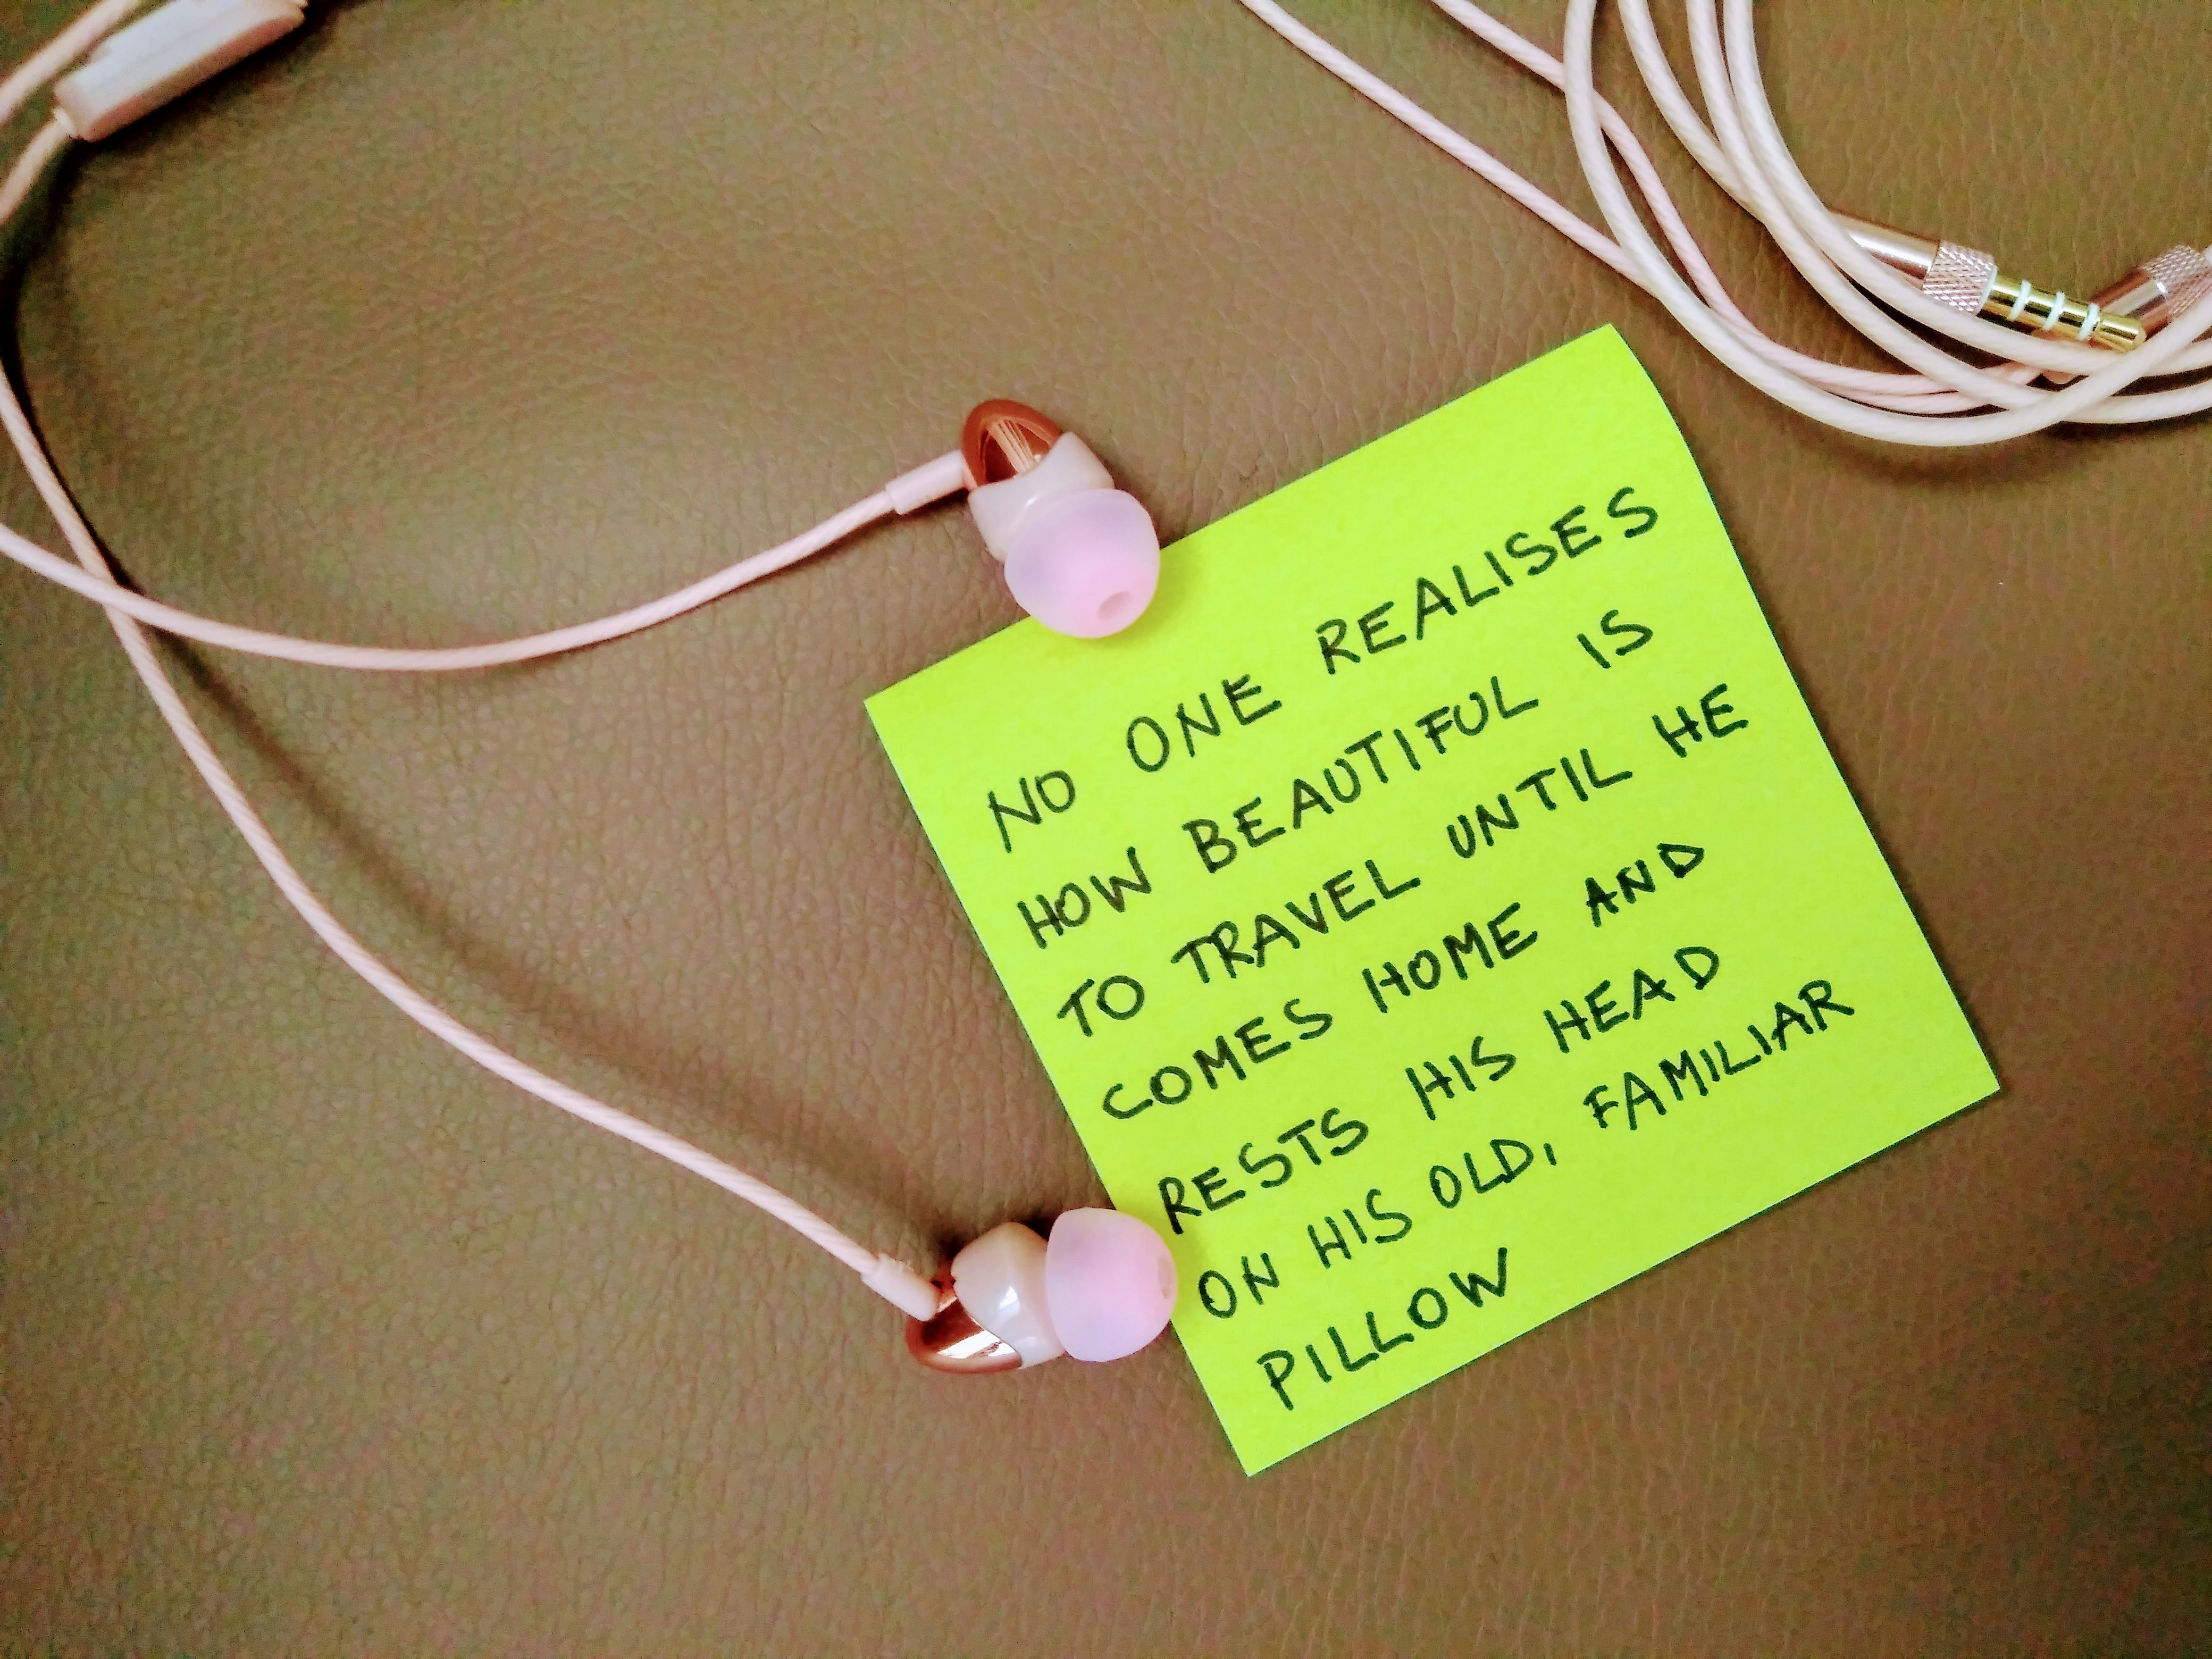 NO ONE REALISES
HOW BEAUTIFUL IS
TO TRAVEL UNTIL HE
COMES HOME AND
RESTS HIS HEAD
ON HIS OLD, FAMILIAR
PILLOW